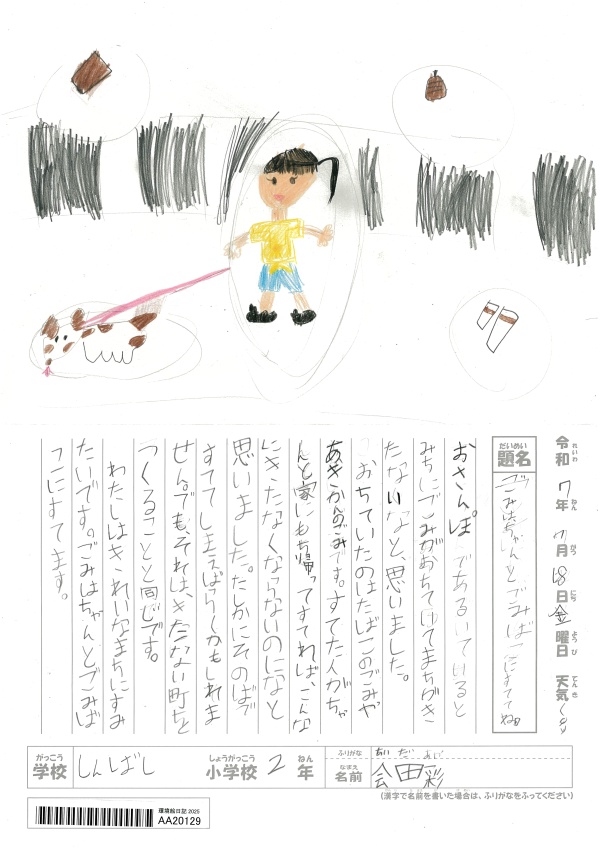 令和 7年 7月 18日 金曜日 天気 くもり
れいわ ねん がつ にち ようび てんき
だいめい
題名
ごみはちゃんとごみばこにすててね
おさんぽであるいていると
みちにごみがおちていてまちがき
たないなと、思いました。
おちていたのはたばこのごみや
あきかんのごみです。すてた人がちゃ
んと家にもち帰ってすてれば、こんな
にきたなくならないのになと
思いました。たしかにそのばで
すててしまえばらくかもしれま
せん。でも、それは、きたない町を
つくることと同じです。
わたしはきれいなまちにすみ
たいです。ごみはちゃんとごみば
こにすてます。
がっこう しょうがっこう ねん
学校 しんばし 小学校 2年
ふりがな あいだ あい
なまえ
名前 会田 彩
(漢字で名前を書いた場合は、ふりがなをふってください)
環境絵日記 2025
AA20129